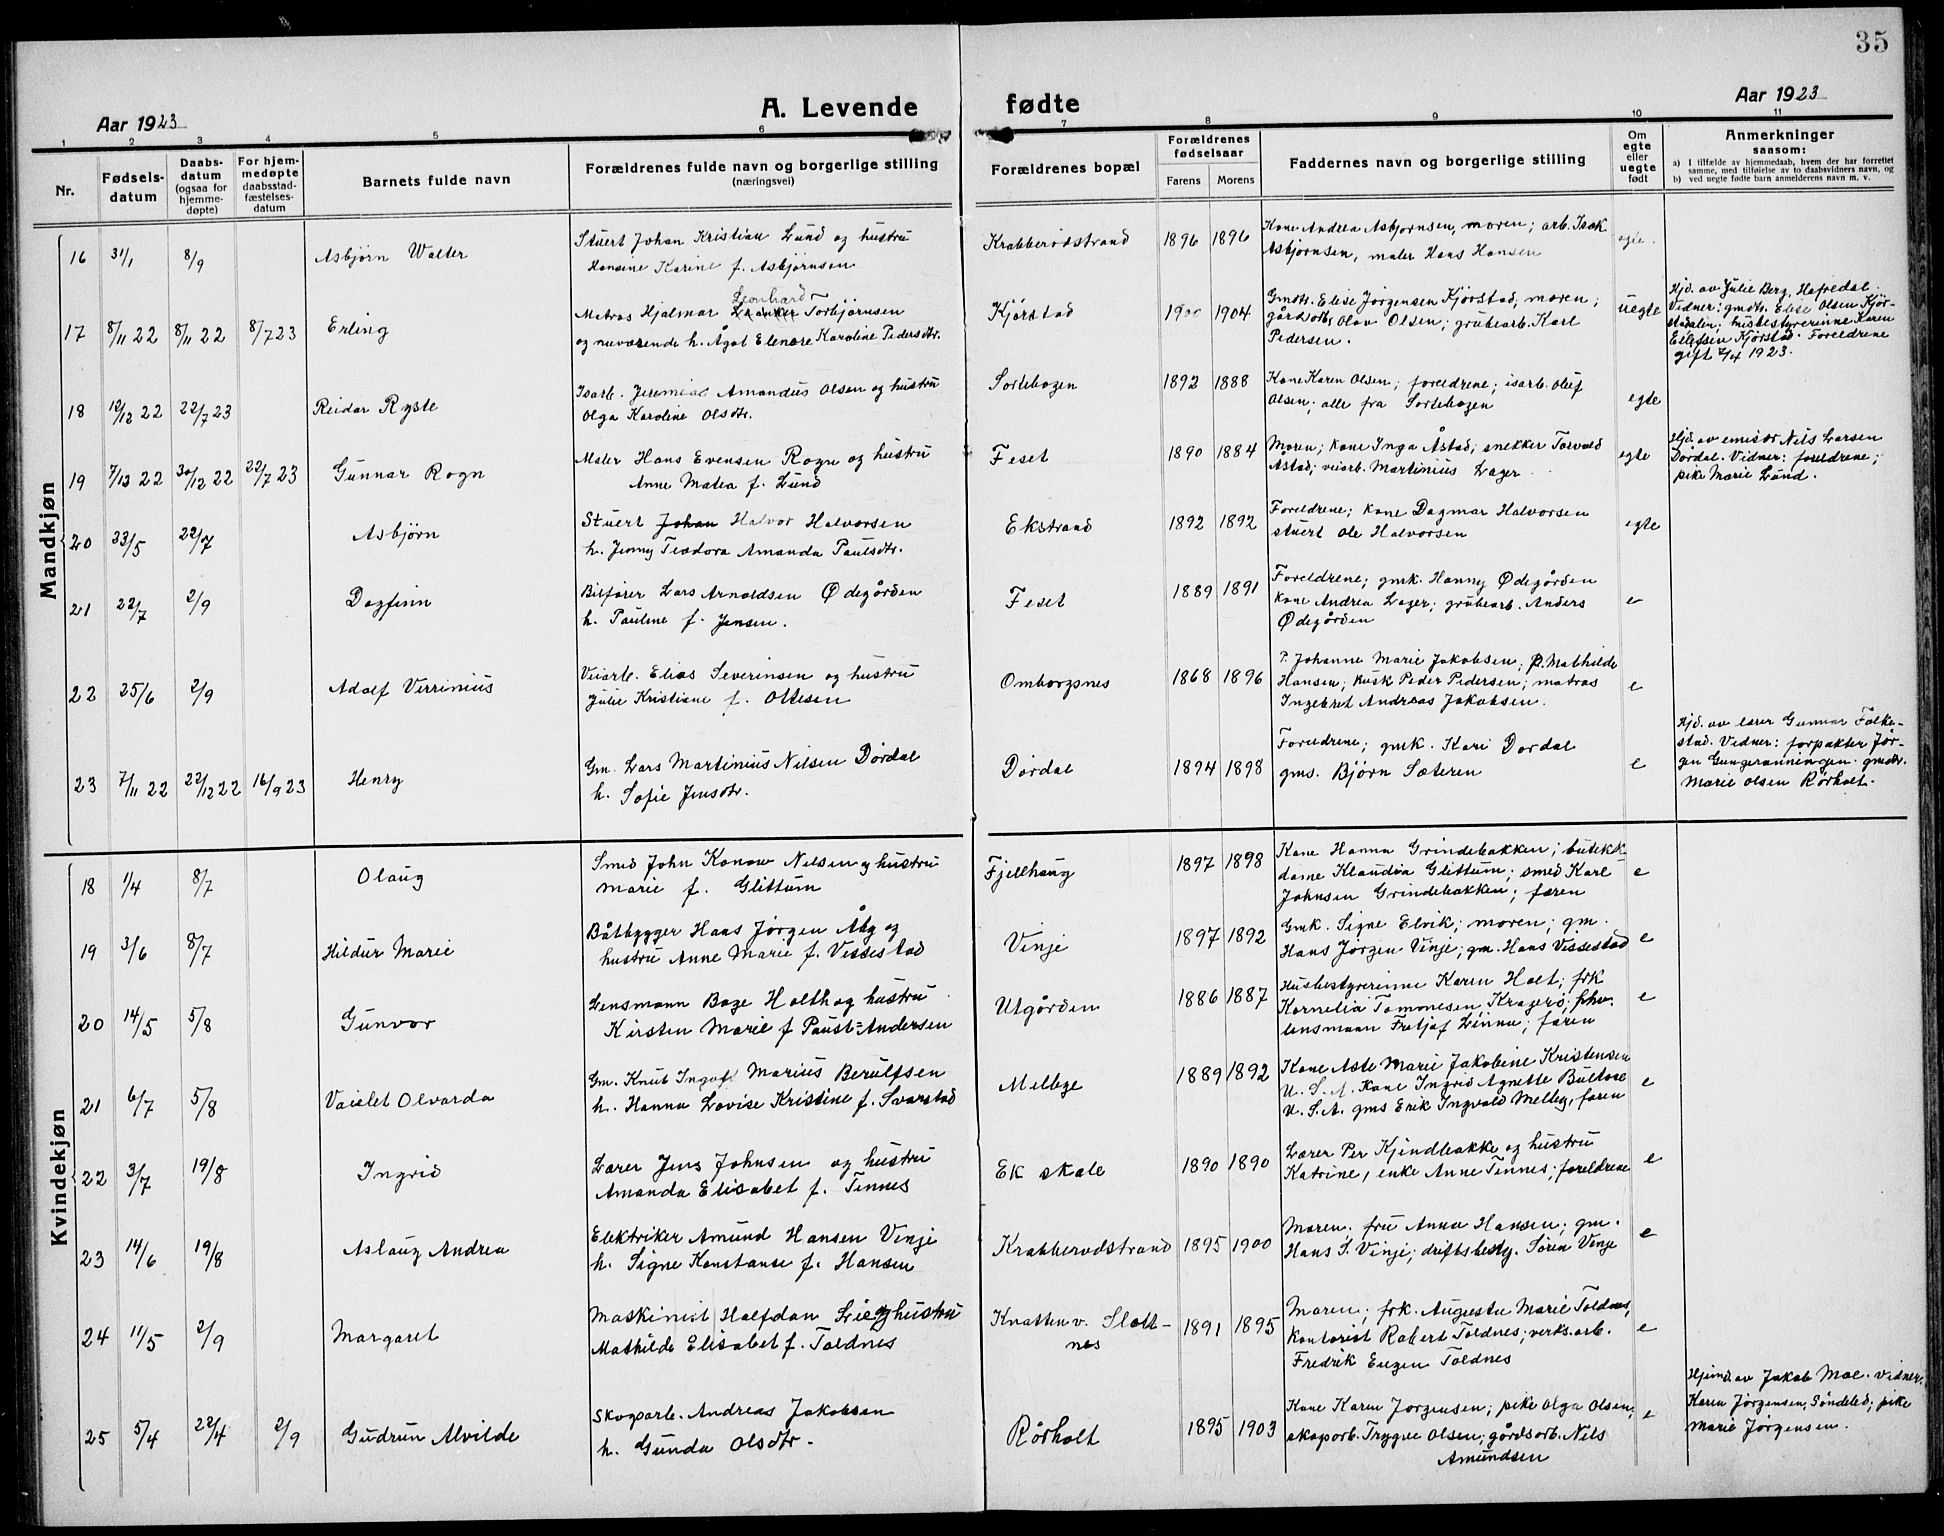 35
Aar 1923
A. Levende fødte
Aar 1923
1 2 3 4 5 6 7 8 9 10 11
Nr.
Fødsels-
datum
Daabs-
datum
(ogsaa for
hjemme-
døpte)
For hjem-
medøpte
daabsstad-
fæstelses-
datum
Barnets fulde navn
Forældrenes fulde navn og borgerlige stilling
(næringsvei)
Forældrenes bopæl
Forældrenes
fødselsaar
Farens Morens
Faddernes navn og borgerlige stilling
Om
egte
eller
uegte
født
Anmerkninger
saasom:
a) I tilfælde av hjemmedaab, hvem der har forrettet
samme, med tilføielse av to daabsvidners navn, og
b) ved uegte fødte barn anmelderens navn m. v.
Mandkjøn
16 31/1 8/9 Asbjørn Walter
Stuert Johan Kristian Lund og hustru
Hansine Karine f. Asbjørnsen
Krabberødstrand 1896 1896
Kone Andrea Asbjørnsen, moren; arb. Isak
Asbjørnsen, maler Hans Hansen
egte.
17 8/11 22 8/11 22 8/7 23 Erling
Leonhard
Matros Hjalmar Torbjørnsen
og nuværende h. Ågot Elenore Karoline Pedersdtr.
Kjørstad 1900 1904
Gmdtr. Elise Jørgensen Kjørstad; moren;
gårdsarb. Olav Olsen; grubearb. Karl
Pedersen.
uegte
Hjd. av Julie Berg, Hafredal.
Vidner: gmdtr. Elise Olsen Kjør-
stadalen; husbestyrerinne Karen
Ellefsen Kjørstad. Foreldrene
gift 2/4 1923.
18 12/12 22 22/7 23 Reidar Ryste
Isarb. Jeremias Amandus Olsen og hustru
Olga Karoline Olsdtr.
Sortebogen 1892 1888
Kone Karen Olsen; foreldrene; isarb. Oluf
Olsen; alle fra Sortebogen
egte
19 7/12 22 30/12 22 22/7 23 Gunnar Rogn
Maler Hans Evensen Rogn og hustru
Anne Matea f. Lund
Feset 1890 1884
Moren; kone Inga Åstad; snekker Torvald
Åstad; veiarb. Martinius Lager
egte
Hjd. av emisær Nils Larsen
Dørdal. Vidner: foreldrene;
pike Marie Lund.
20 23/5 22/7 Asbjørn
Stuert Johan Halvor Halvorsen
h. Jenny Teodora Amanda Paulsdtr.
Ekstrand 1892 1892
Foreldrene; kone Dagmar Halvorsen
stuert Ole Halvorsen
egte
21 22/7 2/9 Dagfinn
Bilfører Lars Arnoldsen Ødegården
h. Pauline f. Jensen.
Feset 1889 1891
Foreldrene; gmk. Hanny Ødegården
Kone Andrea Lager; grubearb. Anders
Ødegården
e
22 25/6 2/9 Adolf Verrinius
Veiarb. Elias Severinsen og hustru
Julie Kristiane f. Ottesen
Omborgsnes 1868 1896
P. Johanne Marie Jakobsen; p. Mathilde
Hansen; kusk Peder Pedersen; matros
Ingebret Andreas Jakobsen.
e
23 7/11 22 22/12 22 16/9 23 Henry
Gm. Lars Martinius Nilsen Dørdal
h. Sofie Jensdtr.
Dørdal 1894 1898
Foreldrene; gmk. Kari Dørdal
gms. Bjørn Sæteren
e
Hjd. av lærer Gunnar Falke-
stad. Vidner: forpakter Jør-
gen Gungeranningen. gmdtr.
Marie Olsen Rørholt.
Kvindekjøn
18 1/4 8/7 Olaug
Smed John Konow Nilsen og hustru
Marie f. Glittum
Fjellhaug 1897 1898
Kone Hanna Grindebakken; butikk-
dame Klaudia Glittum; smed Karl
Johnsen Grindebakken; faren
e
19 3/6 8/7 Hildur Marie
Båtbygger Hans Jørgen Åby og
hustru Anne Marie f. Vissestad
Vinje 1897 1892
Gmk. Signe Elvik; moren; gm.
Hans Jørgen Vinje; gm. Hans Vissestad
e
20 14/5 5/8 Gunvor
Lensmann Båge Holth og hustru
Kirsten Marie f. Paust-Andersen
Utgården 1886 1887
Husbestyrerinne Karen Holt; frk
Kornelia Tomonesen Kragerø; fhv.
lensmann Fretjof Linnu; faren
e
21 6/7 5/8 Vaielet Olvarda
Gm. Knut Ingolf Marius Berulfsen
h. Hanna Lovise Kristine f. Svarstad
Melbye 1889 1892
Kone Aste Marie Jakobine Kristensen
U.S.A. Kone Ingrid Agnette Bultose
U.S.A. gms Erik Ingvald Melby, faren
e
22 3/7 19/8 Ingrid
Lærer Jens Johnsen og hustru
Amanda Elisabet f. Tinnes
Ek skole 1890 1890
Lærer Per Kjindbakke og hustru
Katrine, enke Anne Tinnes; foreldrene
e
23 14/6 19/8 Aslaug Andrea
Elektriker Amund Hansen Vinje
h. Signe Konstanse f. Hansen
Krabberødstrand 1895 1900
Moren; fru Anna Hansen; gm.
Hans S. Vinje; driftsbesty. Søren Vinje
e
24 11/5 2/9 Margaret
Maskinist Halfdan Lie og hustru
Mathilde Elisabet f. Toldnes
Knatten v. Slott-
nes
1891 1895
Moren; frk. Augusta Marie Toldnes,
kontorist Robert Toldnes; verks.arb.
Fredrik Eugen Toldnes
e
25 5/4 22/4 2/9 Gudrun Alvilde
Skogarb. Andreas Jakobsen
h. Gunda Olsdtr.
Rørholt 1895 1903
Kone Karen Jørgensen; pike Olga Olsen;
skogarb. Trygve Olsen; gårdsarb. Nils
Amundsen
e
Hjemd. av Jakob Moe. Vidner:
Karen Jørgensen, Søndeled; pike
Marie Jørgensen.